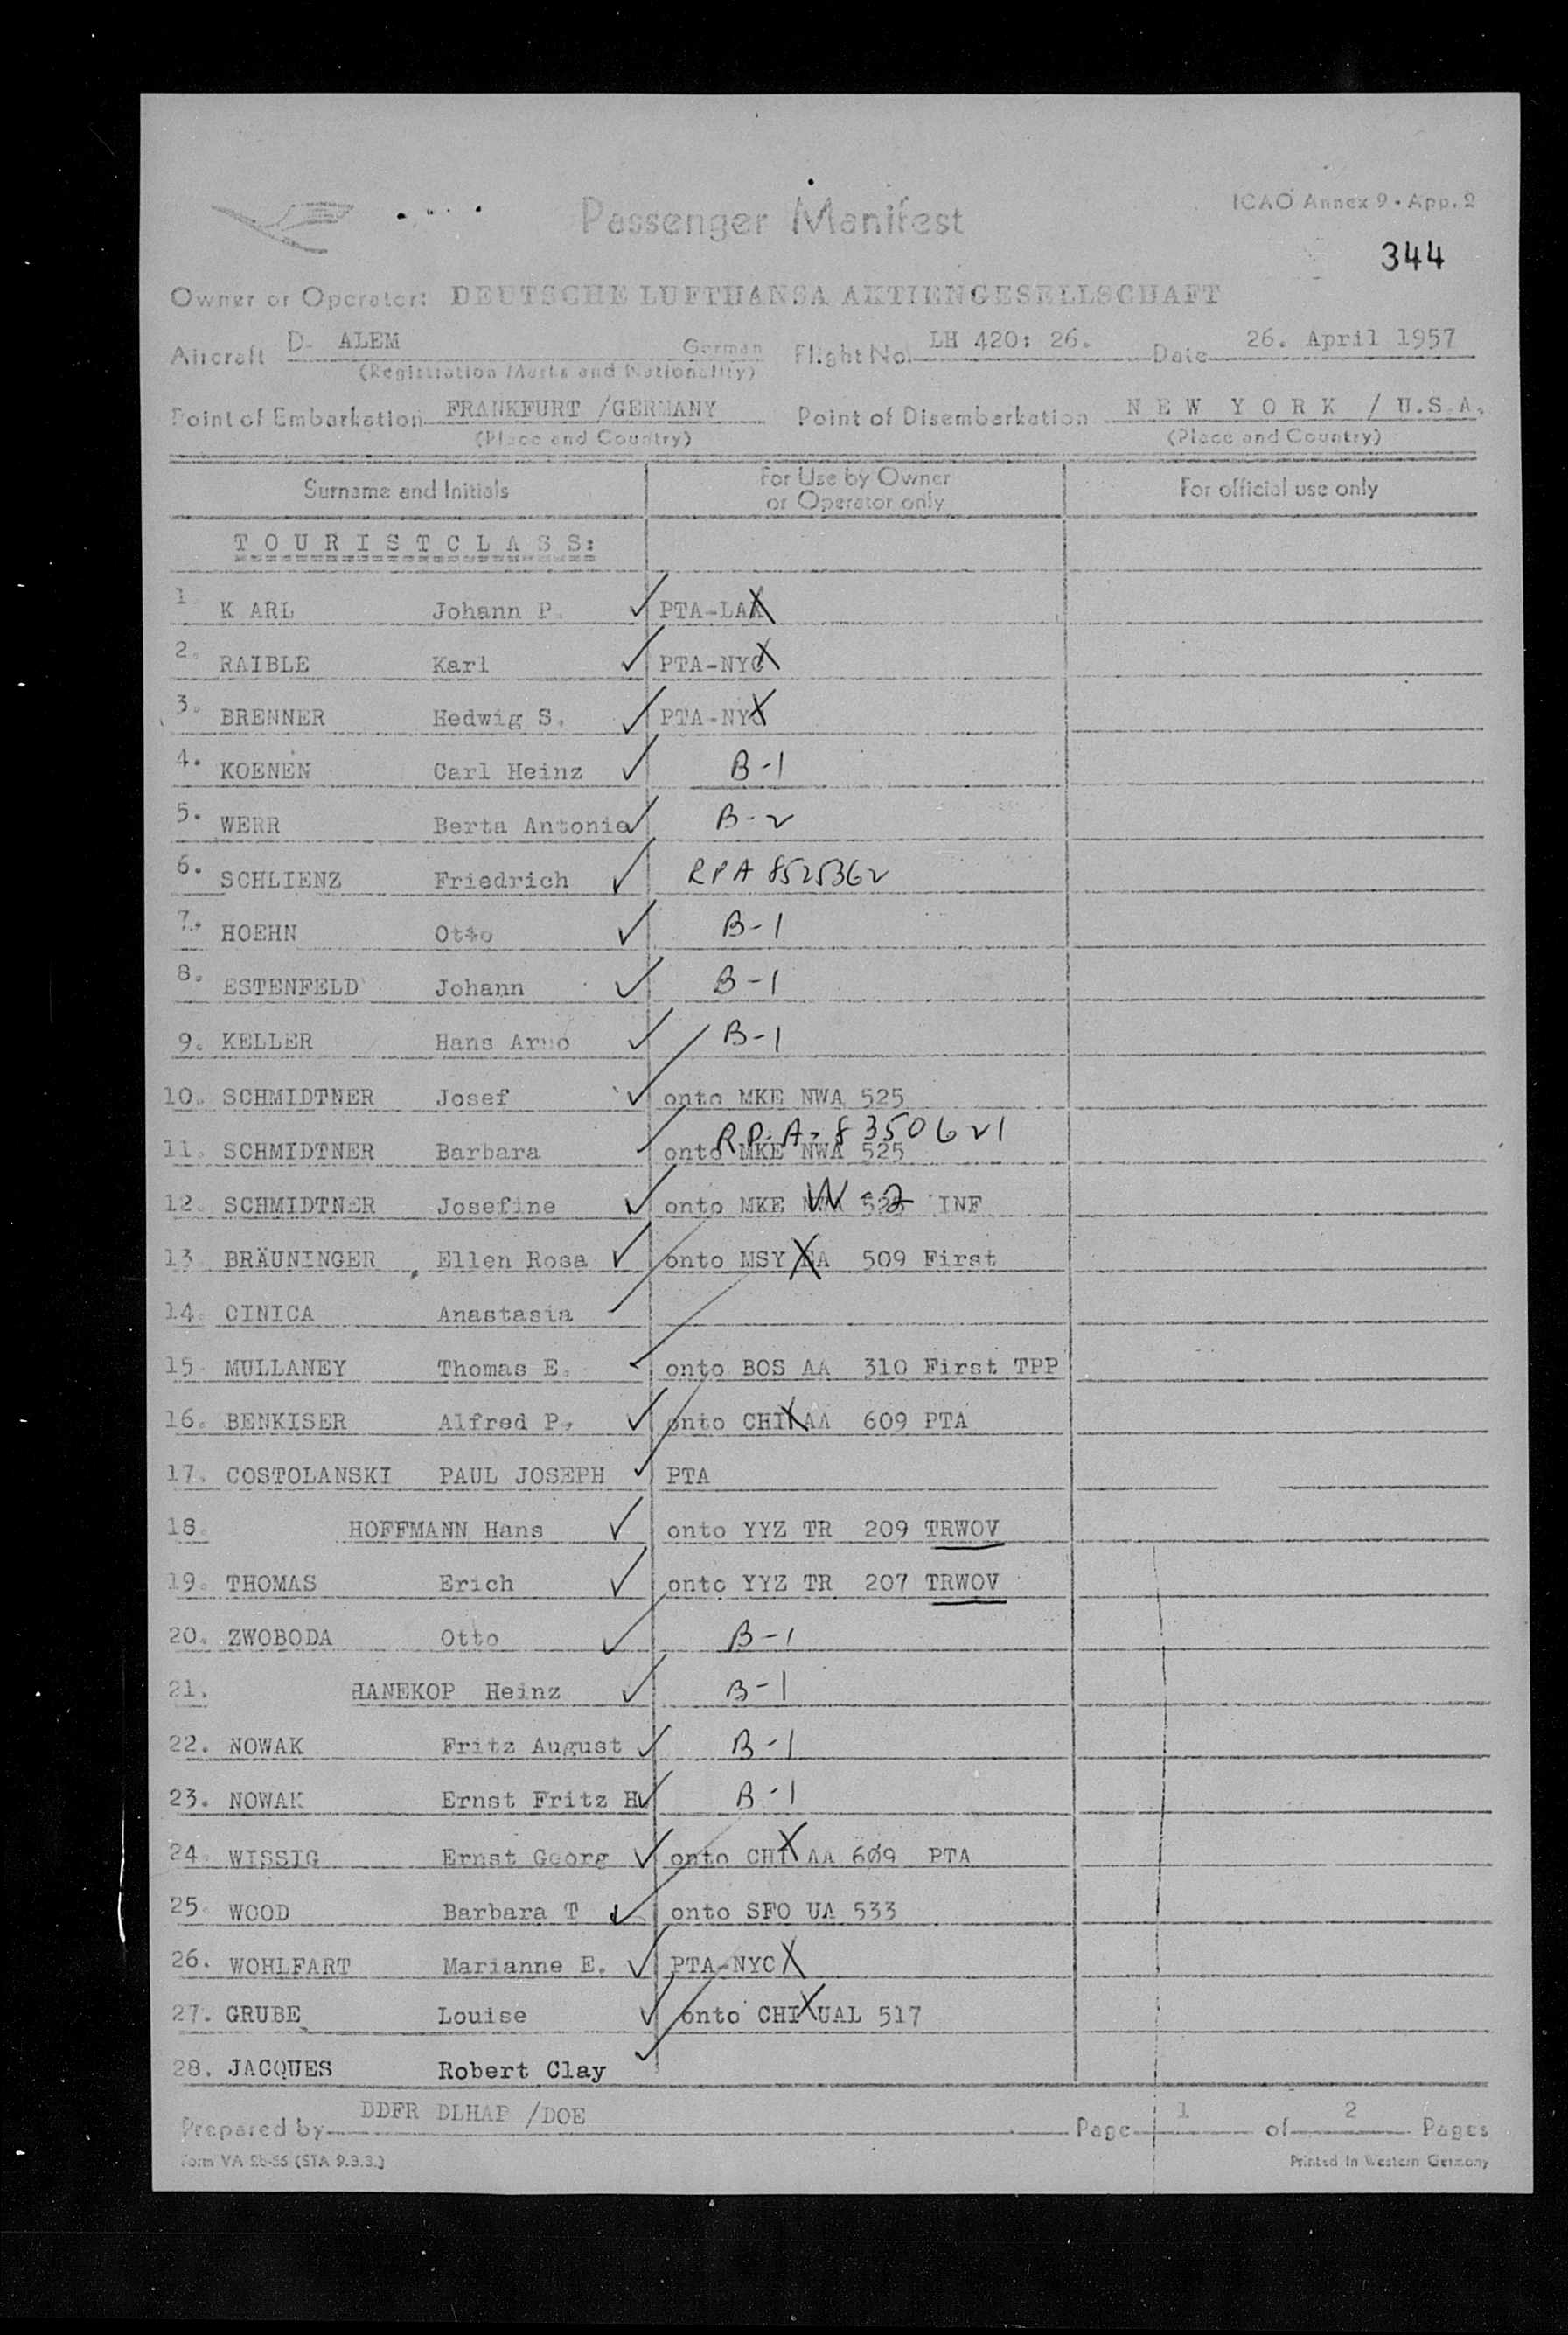 Passenger Manifest
ICAO Annex 9 • App. 2
344
Owner or Operator: DEUTSCHE LUFTHANSA AKTIENGESELLSCHAFT
Aircraft D- ALEM German Flight No. LH 420: 26. Date 26. April 1957
(Registration Marks and Nationality)
Point of Embarkation FRANKFURT /GERMANY Point of Disembarkation N E W Y O R K / U.S.A.
(Place and Country) (Place and Country)
Surname and Initials For Use by Owner or Operator only For official use only
T O U R I S T C L A S S:
1. K ARL Johann P. PTA-LAX
2. RAIBLE Karl PTA-NYC X
3. BRENNER Hedwig S. PTA-NYC X
4. KOENEN Carl Heinz B-1
5. WERR Berta Antonie B-2
6. SCHLIENZ Friedrich RPA 8525362
7. HOEHN Otto B-1
8. ESTENFELD Johann B-1
9. KELLER Hans Arno B-1
10. SCHMIDTNER Josef onto MKE NWA 525
RPA-8350621
11. SCHMIDTNER Barbara onto MKE NWA 525
12. SCHMIDTNER Josefine onto MKE NWA 525 INF
13 BRÄUNINGER, Ellen Rosa onto MSY X EA 509 First
14. CINICA Anastasia
15 MULLANEY Thomas E. onto BOS AA 310 First TPP
16. BENKISER Alfred P. onto CHI X AA 609 PTA
17. COSTOLANSKI PAUL JOSEPH PTA
18. HOFFMANN Hans onto YYZ TR 209 TRWOV
19. THOMAS Erich onto YYZ TR 207 TRWOV
20. ZWOBODA Otto B-1
21. HANEKOP Heinz B-1
22. NOWAK Fritz August B-1
23. NOWAK Ernst Fritz H B-1
24. WISSIG Ernst Georg onto CHI X AA 609 PTA
25. WOOD Barbara T onto SFO UA 533
26. WOHLFART Marianne E. PTA-NYC X
27. GRUBE Louise onto CHI X UAL 517
28. JACQUES Robert Clay
Prepared by DDFR DLHAP /DOE Page 1 of 2 Pages
Form VA 2b-55 (STA 9.3.3.) Printed in Western Germany